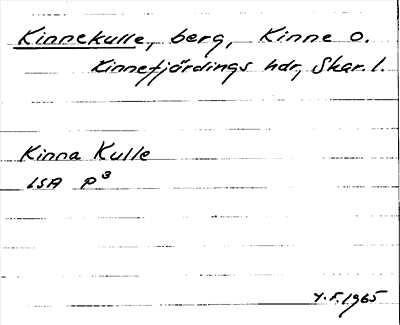 Kinnekulle, berg, Kinne o.
Kinnefjärdings hdr, Skar. l.
Kinna Kulle
LSA P3
Y.F. 1965